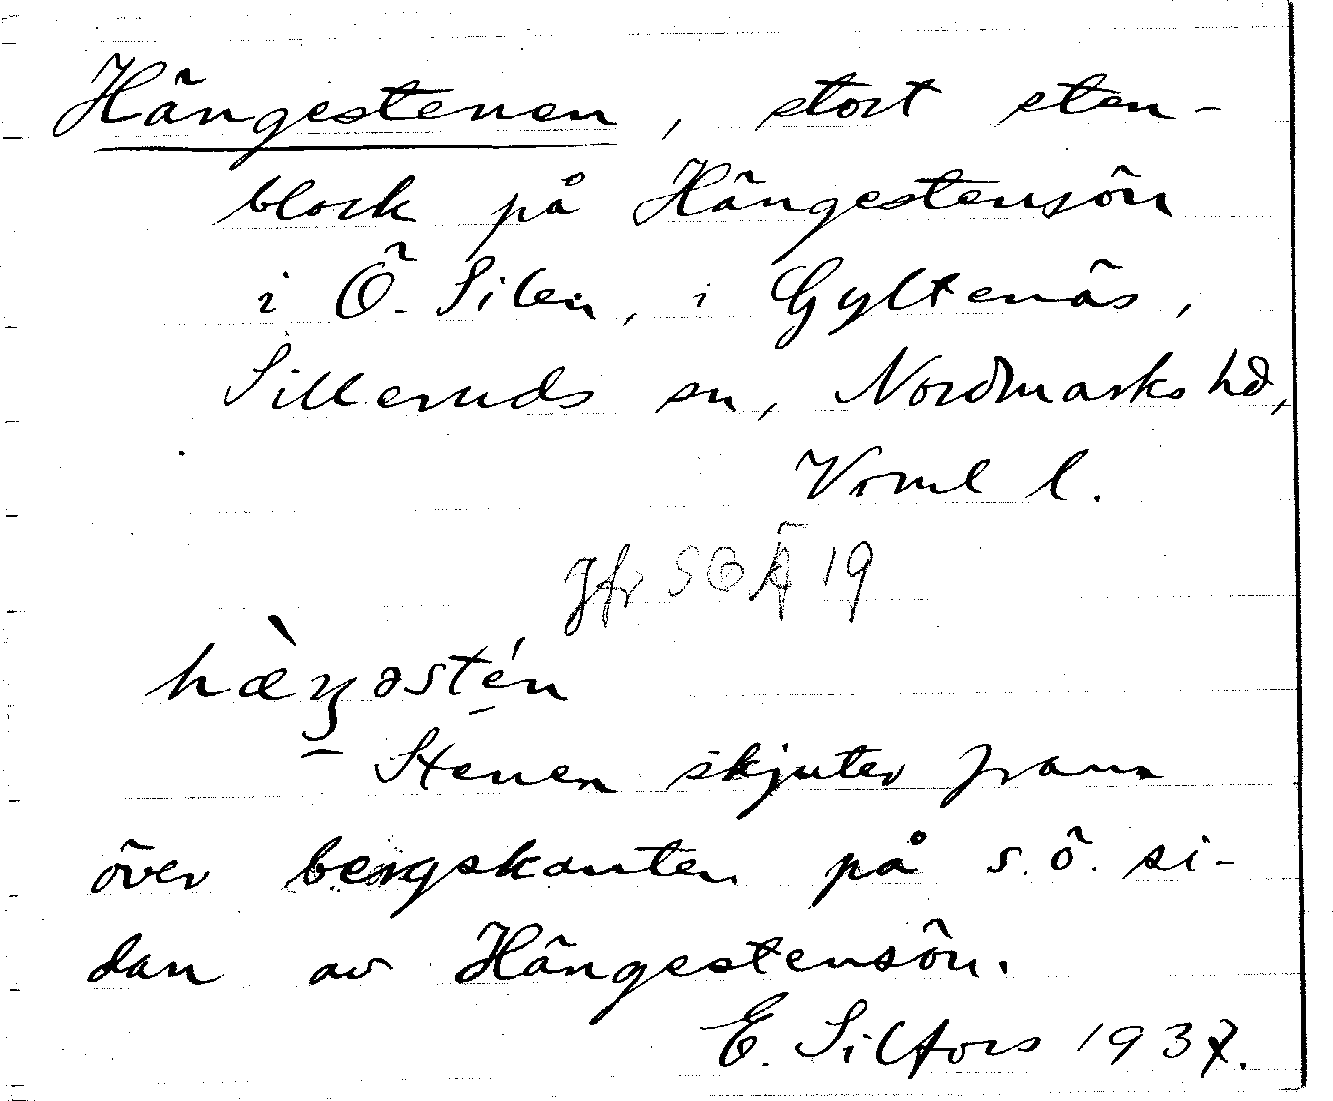 Hängestenen, stort sten-
block på Hängestensön
i Ö. Silen, i Gyltenäs,
Silleruds sn, Nordmarks hd,
Vrml l.
Jfr SOÄ 19
hæ̀ŋəstén
Stenen skjuter fram
över bergskanten på s.ö. si-
dan av Hängestensön.
E. Silfors 1937.